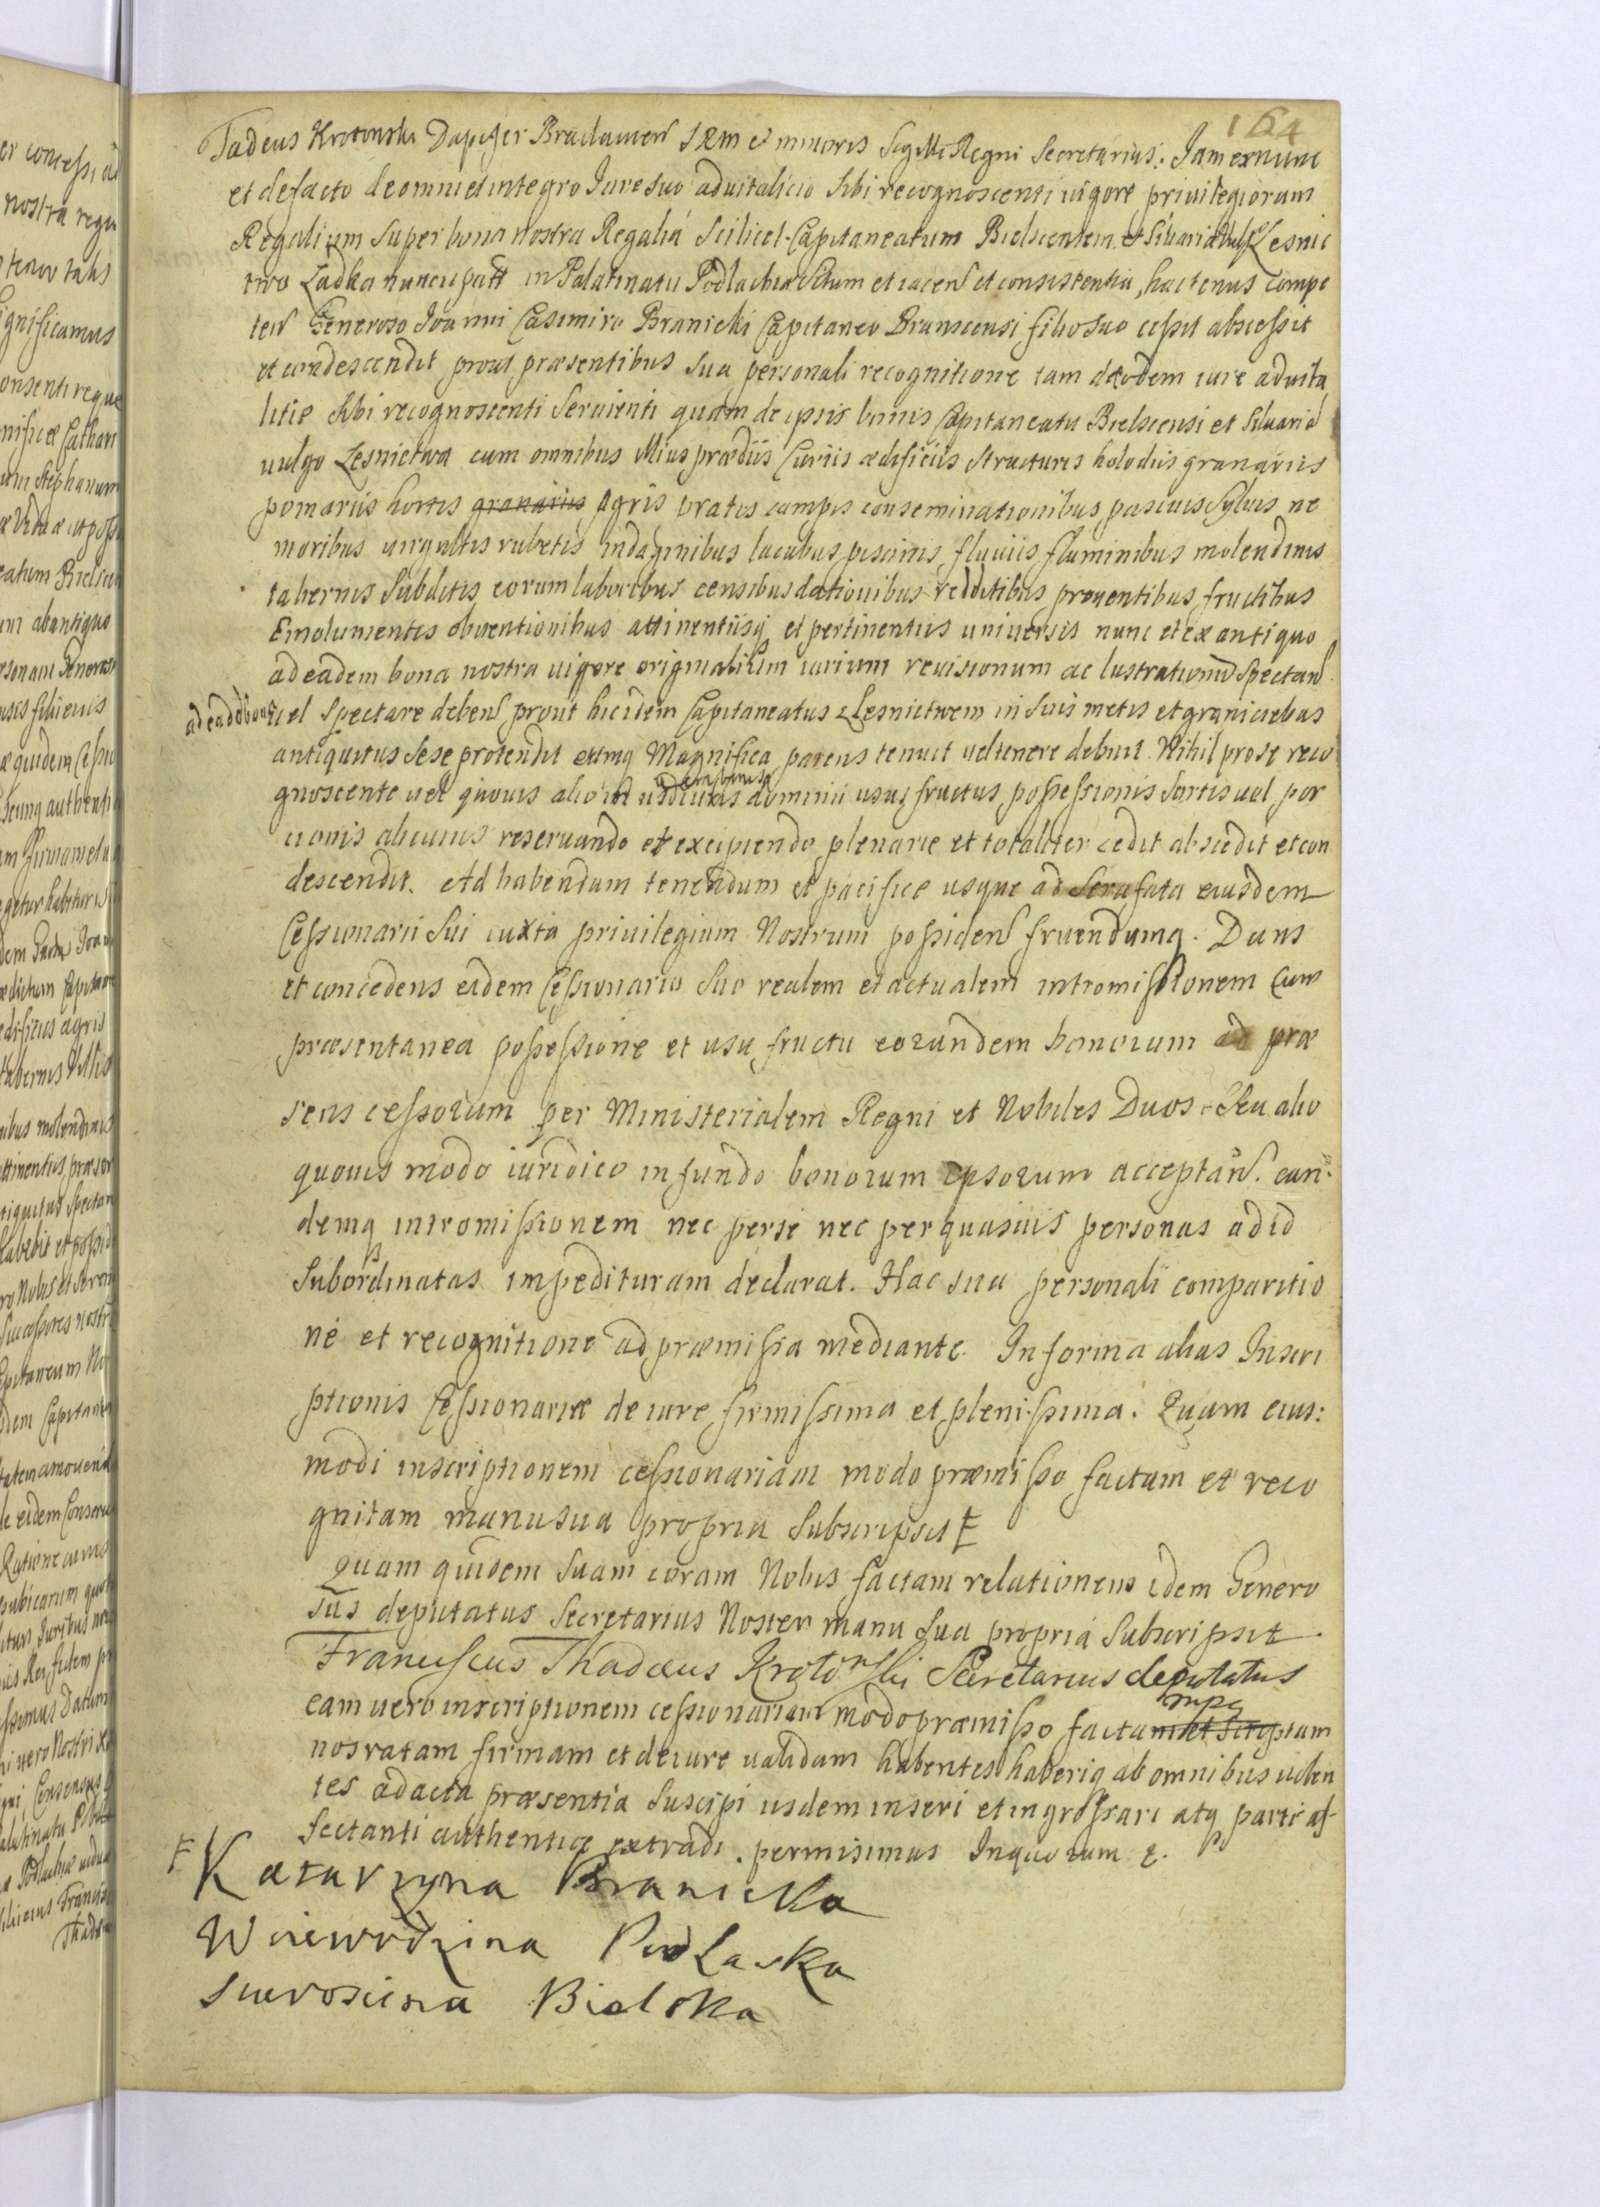 164
Tadeus Krotonski Dapifer Braclawien SRM et minoris Sigilli Regni Secretarius. Iam ex nunc
et de facto de omni et integro Iure suo aduitalicio sibi recognoscenti uigore priuilegiorum
Regalium super bona nostra Regalia Scilicet Capitaneatum Bielscensem et Siluaria vulgo Lesnic
two Ladka nuncupatt in Palatinatu Podlachia situm et iacen et consistentia, hactenus compe
ten Generoso Ioanni Casimiro Branicki Capitaneo Branscensi filio suo cessit abscessit
et condescendit prout præsentibus sua personali recognitione tam de eodem iure aduita
litio sibi recognoscenti seruienti quam de ipsis bonis Capitaneatu Bielscensi et Siluaria
uulgo Lesnictwa cum omnibus Villis prædiis Curiis ædificiis structuris holodiis granariis
pomariis hortis granariis Agris pratis campis conseminationibus pascuis syluis ne
moribus uirgultis rubetis indaginibus lacubus piscinis, fluuiis, fluminibus molendinis
tabernis subditis eorum laboribus censibus dationibus redditibus prouentibus fructibus
Emolumentis obuentionibus attinentiisq et pertinentiis uniuersis nunc et ex antiquo
ad eadem bona nostra uigore originalium iurium reuisionum ac lustrationum spectan
ad eadē bona uel spectare deben prout hic idem Capitaneatus Lesnictwem in suis metis et graniciebus
antiquitus sese protendit eumq Magnifica parens tenuit uel tenere debuit. Nihil pro se reco
gnoscente uel quouis alio in dominii usus fructus possessionis sortis uel por
cionis alicuius reseruando et excipiendo, plenarie et totaliter cedit abscedit et con
descendit. Ad habendum tenendum et pacifice usque ad sera fata eiusdem
Cessionarii sui iuxta priuilegium Nostrum possiden fruendumq. Dans
et concedens eidem Cessionario suo realem et actualem intromissionem cum
præsentanea possessione et usu fructu eorundem bonorum ad præ
sens cessorum per Ministerialem Regni et Nobiles Duos seu alio
quouis modo iuridico in fundo bonorum ipsorum acceptan. ean
demq intromissionem nec per se nec per quasuis personas ad id
subordinatas impedituram declarat. Hac sua personali comparitio
ne et recognitione ad præmissa mediante. In forma alias Inscri
ptionis Cessionariæ de iure firmissima et plenissima. Quam eius:
modi inscriptionem cessionariam modo præmisso factam et reco
gnitam manu sua propria subscripsit
quam quidem suam coram Nobis factam relationem idem Genero
sus deputatus Secretarius Noster manu sua propria subscripsit.
Franciscus Thadæus Krotonski Secretarius deputatus
mpp
eam uero inscriptionem cessionariam modo præmisso factam et scriptam
nos ratam firmam et de iure ualidam habentes haberiq ab omnibus uolen
tes ad acta præsentia suscipi iisdem inseri et ingrossari atq parti af
fectanti authentice extradi permisimus In quorum &.
Katarzyna Branicka
Woiewodzina Podlaska
Starościna Bielska